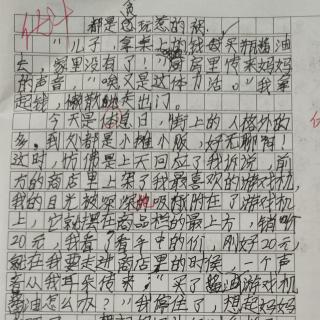 都是贪玩惹的祸
"儿子,拿桌上的钱买瓶酱油
去,家里没有了!"厨房里传来妈妈
的声音,"唉又是这体力活。"我拿
起钱,懒散地走出门。
今天是休息日,街上的人格外的
多。到处都是小摊小贩,好无聊啊!
这时,仿佛是上天回应了我诉说,前
方的商店里上架了我最喜欢的游戏机
我的目光被深深地吸引的在了游戏机
上,它就摆在商品栏的最上方,销价
20元,我看了看手中的价,刚好20元,
就在我要走进商店里的时候,一个声
音从我耳朵传来:"买了游戏机
酱油怎么办?"我停住了,想起妈妈